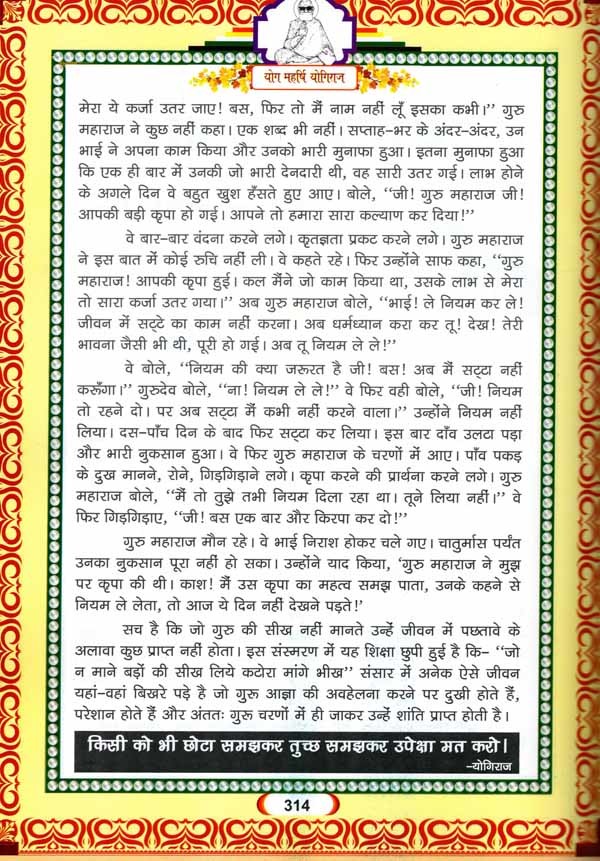 योग महर्षि योगिराज
मेरा ये कर्जा उतर जाए! बस, फिर तो मैं नाम नहीं लूँ इसका कभी।’’ गुरु
महाराज ने कुछ नहीं कहा। एक शब्द भी नहीं। सप्ताह-भर के अंदर-अंदर, उन
भाई ने अपना काम किया और उनको भारी मुनाफा हुआ। इतना मुनाफा हुआ
कि एक ही बार में उनकी जो भारी देनदारी थी, वह सारी उतर गई। लाभ होने
के अगले दिन वे बहुत खुश हँसते हुए आए। बोले, ‘‘जी! गुरु महाराज जी!
आपकी बड़ी कृपा हो गई। आपने तो हमारा सारा कल्याण कर दिया!’’
वे बार-बार वंदना करने लगे। कृतज्ञता प्रकट करने लगे। गुरु महाराज
ने इस बात में कोई रुचि नहीं ली। वे कहते रहे। फिर उन्होंने साफ कहा, ‘‘गुरु
महाराज! आपकी कृपा हुई। कल मैंने जो काम किया था, उसके लाभ से मेरा
तो सारा कर्जा उतर गया।’’ अब गुरु महाराज बोले, ‘‘भाई! ले नियम कर ले!
जीवन में सट्टे का काम नहीं करना। अब धर्मध्यान करा कर तू! देख! तेरी
भावना जैसी भी थी, पूरी हो गई। अब तू नियम ले ले!’’
वे बोले, ‘‘नियम की क्या जरूरत है जी! बस! अब मैं सट्टा नहीं
करूँगा।’’ गुरुदेव बोले, ‘‘ना! नियम ले ले!’’ वे फिर वही बोले, ‘‘जी! नियम
तो रहने दो। पर अब सट्टा मैं कभी नहीं करने वाला।’’ उन्होंने नियम नहीं
लिया। दस-पाँच दिन के बाद फिर सट्टा कर लिया। इस बार दाँव उलटा पड़ा
और भारी नुकसान हुआ। वे फिर गुरु महाराज के चरणों में आए। पाँव पकड़
के दुख मानने, रोने, गिड़गिड़ाने लगे। कृपा करने की प्रार्थना करने लगे। गुरु
महाराज बोले, ‘‘मैं तो तुझे तभी नियम दिला रहा था। तूने लिया नहीं।’’ वे
फिर गिड़गिड़ाए, ‘‘जी! बस एक बार और किरपा कर दो!’’
गुरु महाराज मौन रहे। वे भाई निराश होकर चले गए। चातुर्मास पर्यंत
उनका नुकसान पूरा नहीं हो सका। उन्होंने याद किया, ‘गुरु महाराज ने मुझ
पर कृपा की थी। काश! मैं उस कृपा का महत्व समझ पाता, उनके कहने से
नियम ले लेता, तो आज ये दिन नहीं देखने पड़ते!’
सच है कि जो गुरु की सीख नहीं मानते उन्हें जीवन में पछतावे के
अलावा कुछ प्राप्त नहीं होता। इस संस्मरण में यह शिक्षा छुपी हुई है कि- ‘‘जो
न माने बड़ों की सीख लिये कटोरा मांगे भीख’’ संसार में अनेक ऐसे जीवन
यहां-वहां बिखरे पड़े है जो गुरू आज्ञा की अवहेलना करने पर दुखी होते हैं,
परेशान होते हैं और अंततः गुरू चरणों में ही जाकर उन्हें शांति प्राप्त होती है।
किसी को भी छोटा समझकर तुच्छ समझकर उपेक्षा मत करो।
-योगिराज
314